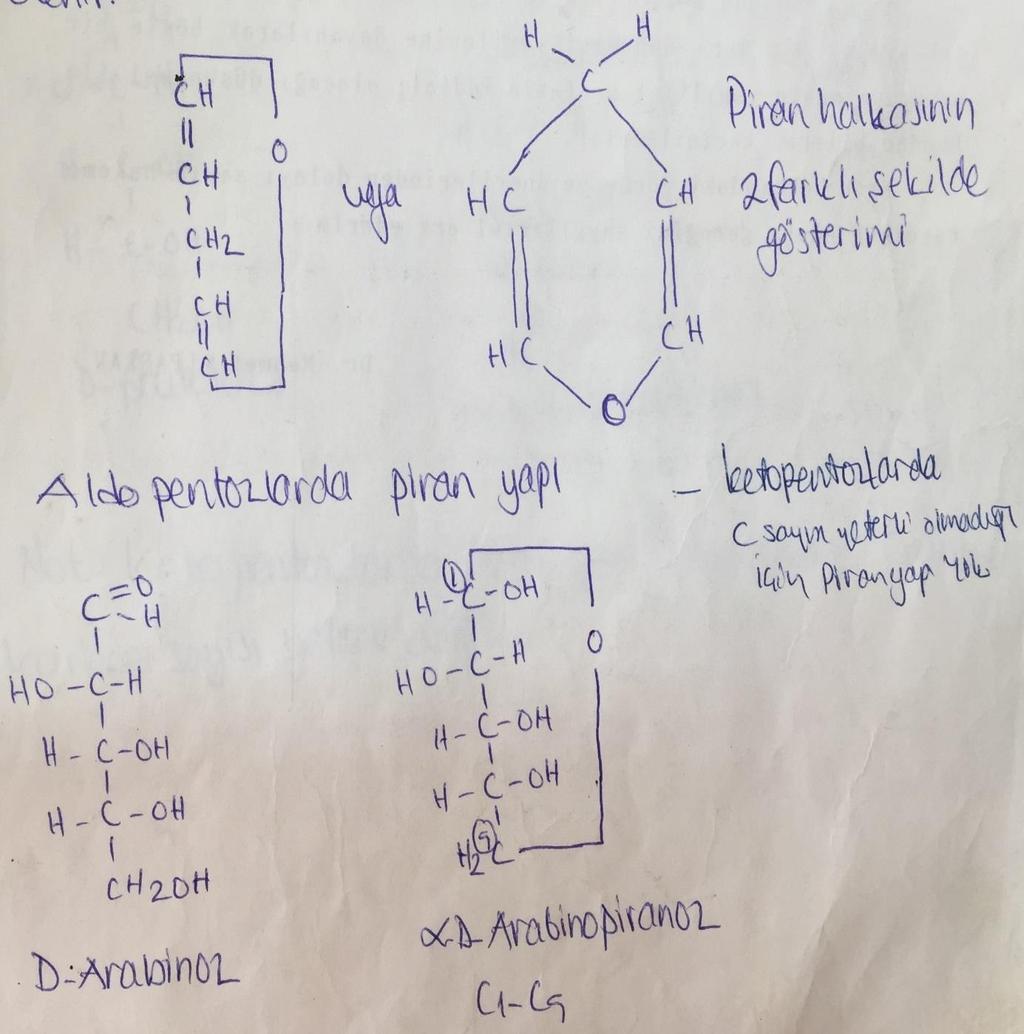 CH
||
CH
CH2
CH
||
CH
O
veya
H H
C
HC CH
HC CH
O
Piran halkasının
2 farklı şekilde
gösterimi
Aldopentozlarda piran yapı
- ketopentozlarda
C sayısı yeterli olmadığı
için Piran yapı Yok
C=O
-H
HO-C-H
H-C-OH
H-C-OH
CH2OH
D-Arabinoz
1
H-C-OH
HO-C-H
H-C-OH
H-C-OH
5
H2C
O
α-D Arabinopiranoz
C1-C5